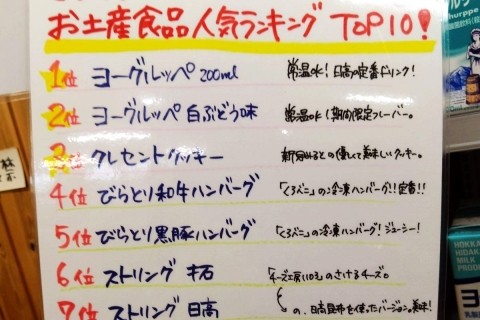 お土産食品人気ランキング TOP10!
1位 ヨーグルッペ 200ml 常温OK! 日高の定番ドリンク!
2位 ヨーグルッペ 白ぶどう味 常温OK! 期間限定フレーバー。
3位 クレセントクッキー の優しくて美味しいクッキー。
4位 びらとり和牛ハンバーグ 「くろべこ」の冷凍ハンバーグ!!定番!!
5位 びらとり黒豚ハンバーグ 「くろべこ」の冷凍ハンバーグ! ジューシー!
6位 ストリング 「チーズ工房103」のさけるチーズ。
7位 ストリング 日高 の、日高昆布を使ったバージョン。美味!
HOKKA
HIDAKA
MILK
PRODUC